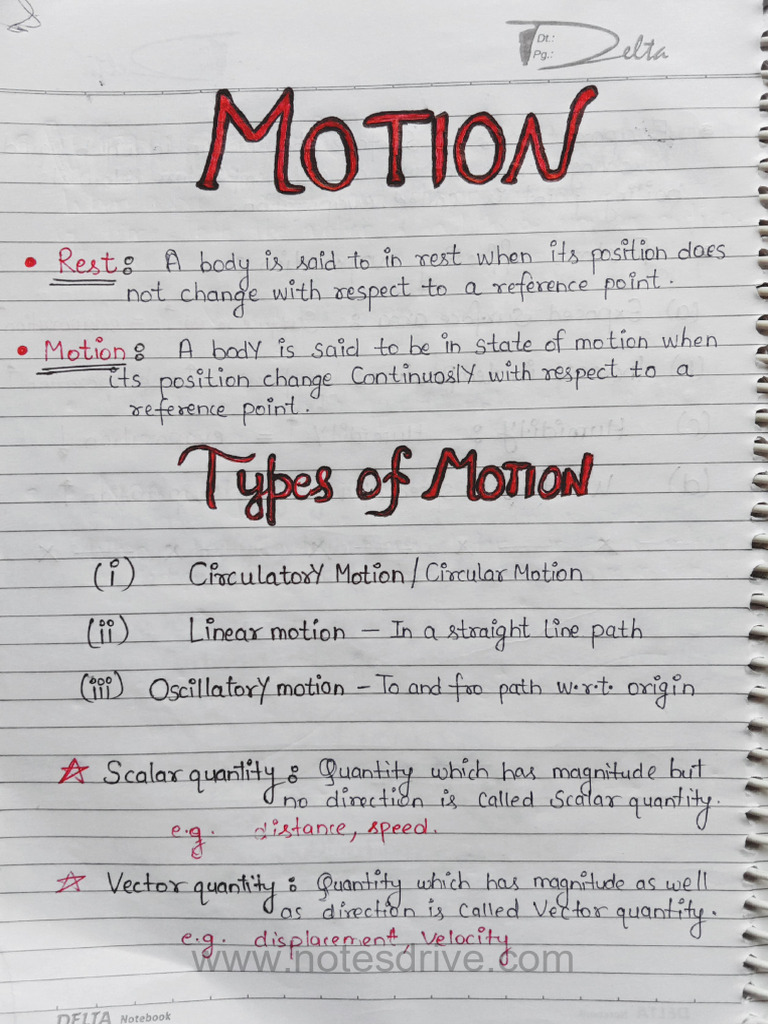 Dt.:
Pg.:
Delta
MOTION
• Rest : A body is said to in rest when its position does
not change with respect to a reference point.
• Motion : A body is said to be in state of motion when
its position change Continuosly with respect to a
reference point.
Types of MOTION
(i) Circulatory Motion / Circular Motion
(ii) Linear motion – In a straight line path
(iii) Oscillatory motion – To and fro path w.r.t. origin
☆ Scalar quantity : Quantity which has magnitude but
no direction is called Scalar quantity.
e.g. distance, speed.
☆ Vector quantity : Quantity which has magnitude as well
as direction is called Vector quantity.
e.g. displacement, velocity
www.notesdrive.com
DELTA Notebook